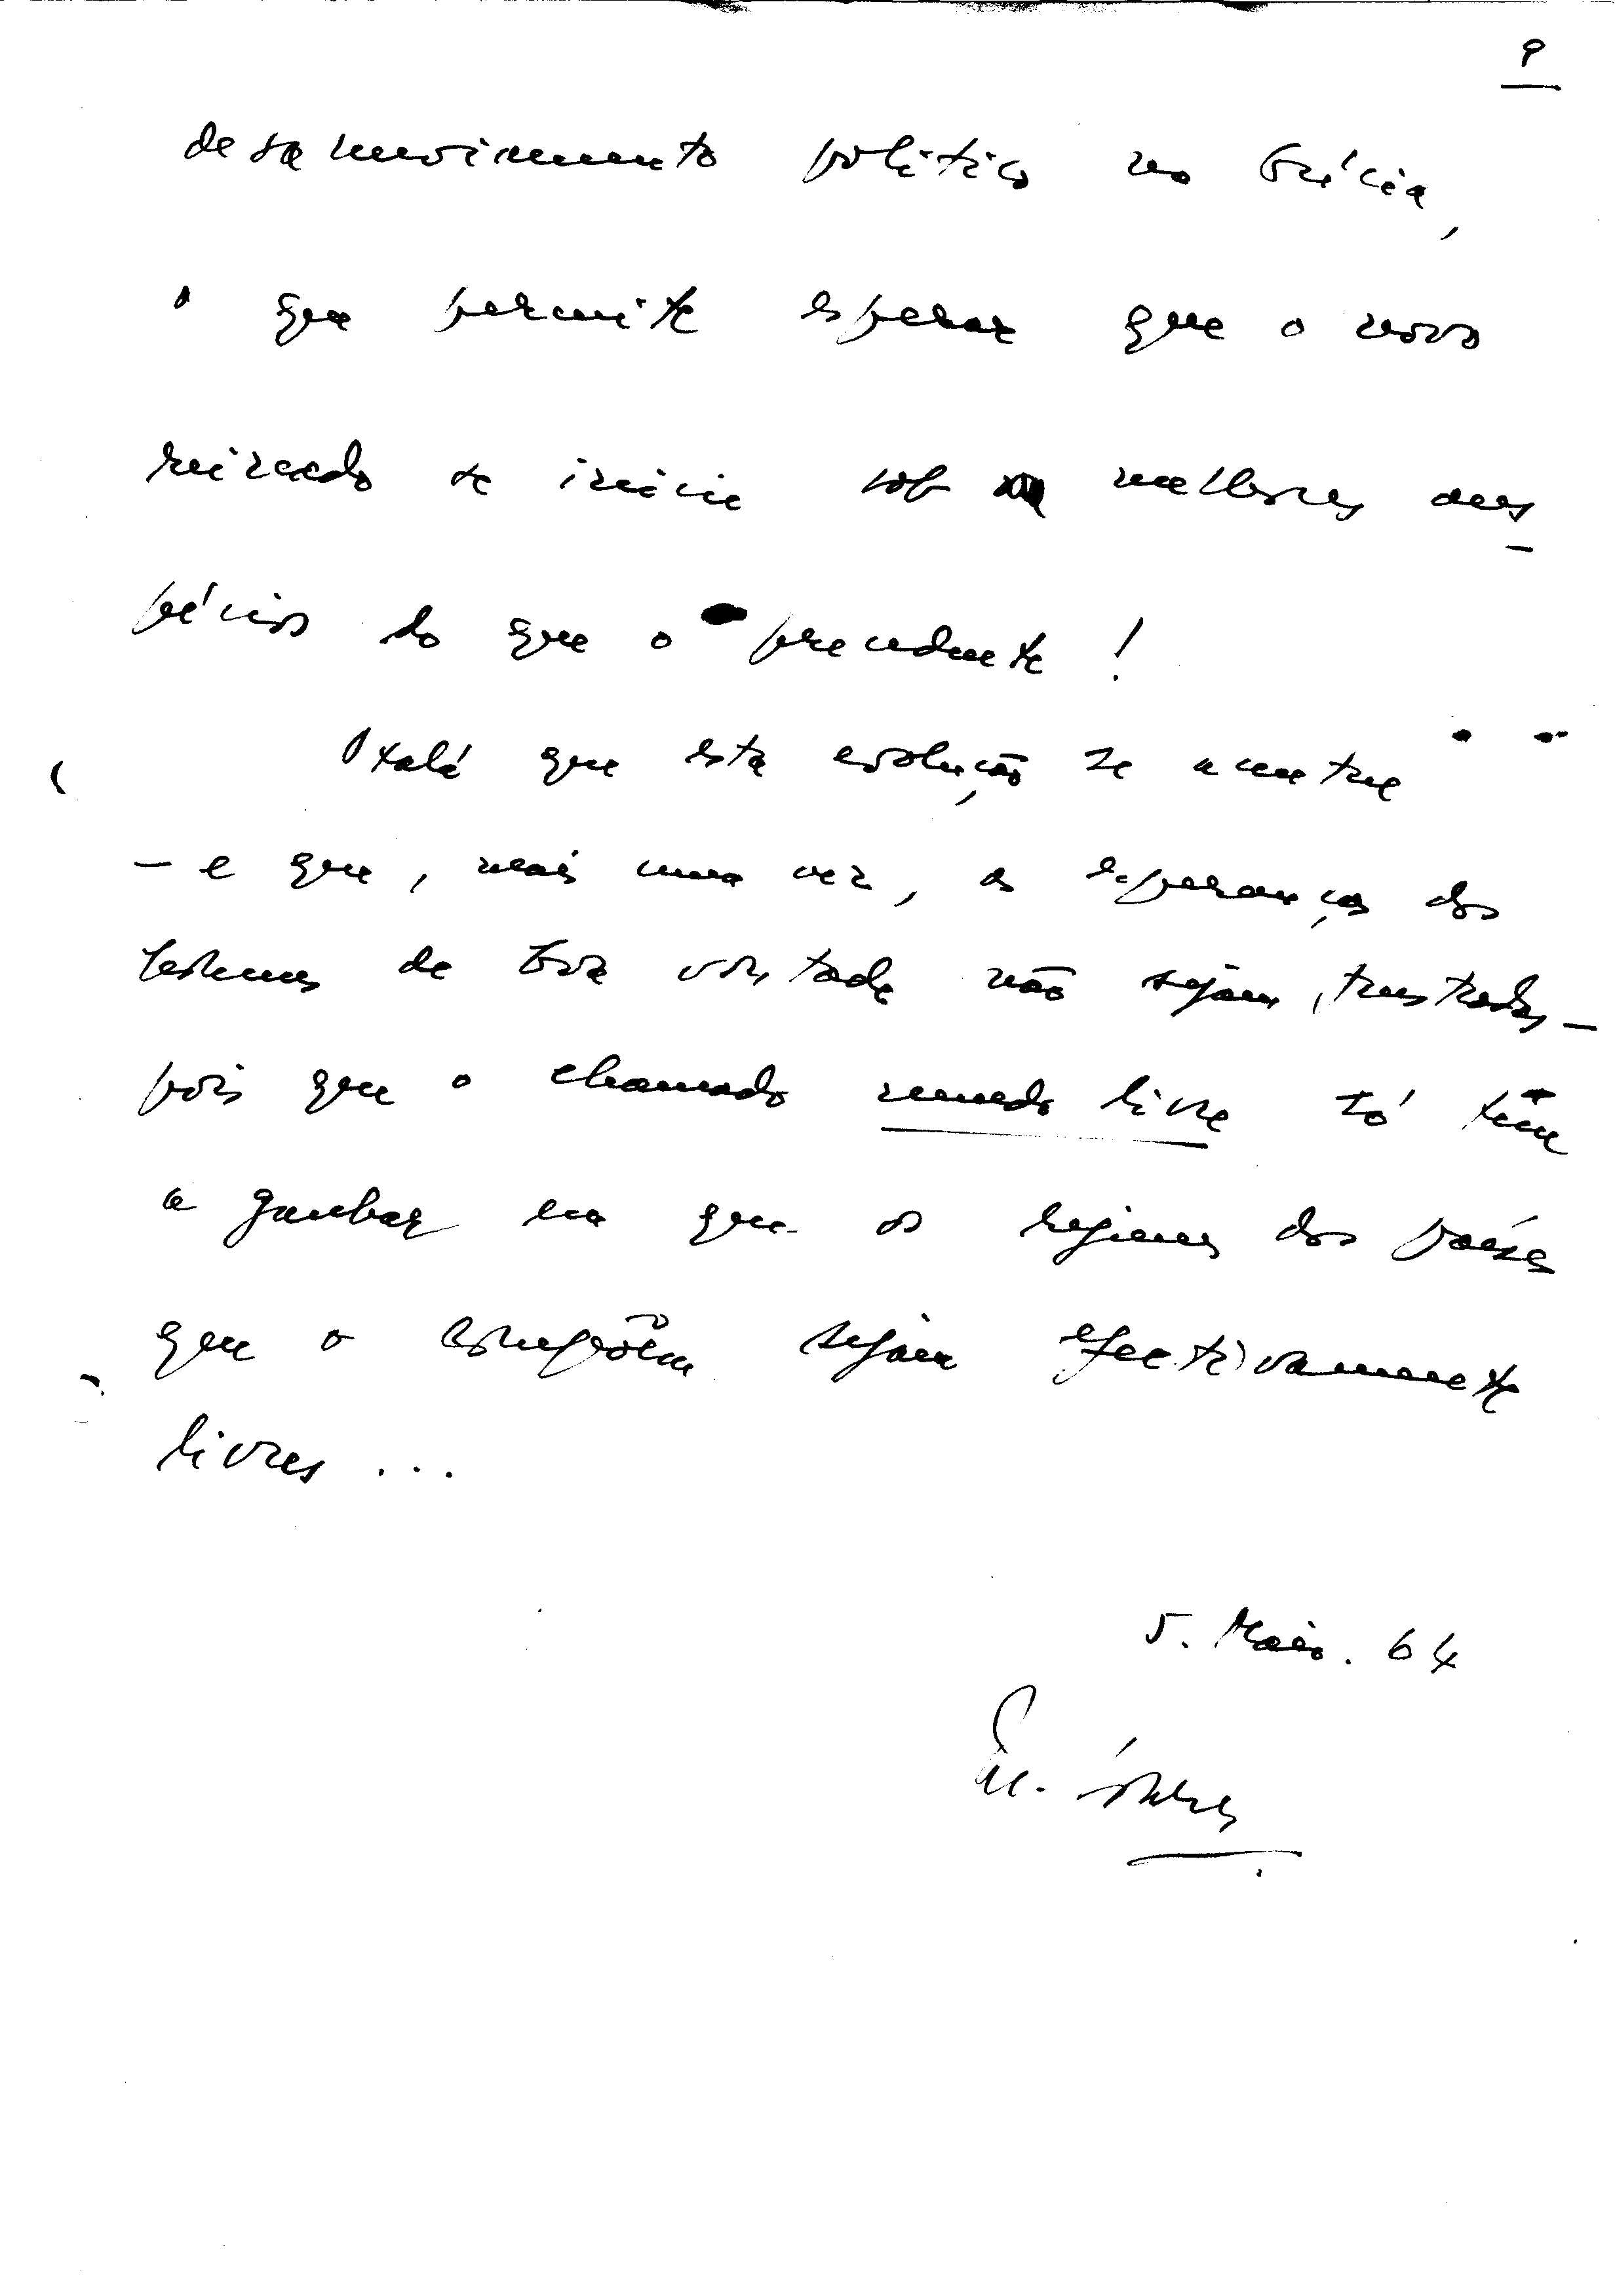 9
desanuviamento político na Grécia,
o que permite esperar que o novo
reinado se inicie sob melhores aus-
pícios do que o precedente!
Oxalá que esta evolução se acentue
– e que, mais uma vez, as esperanças dos
homens de boa vontade não sejam frustradas –
pois que o chamado mundo livre só tem
a ganhar em que os regimes dos países
que o compõem sejam efectivamente
livres...
5. Maio. 64